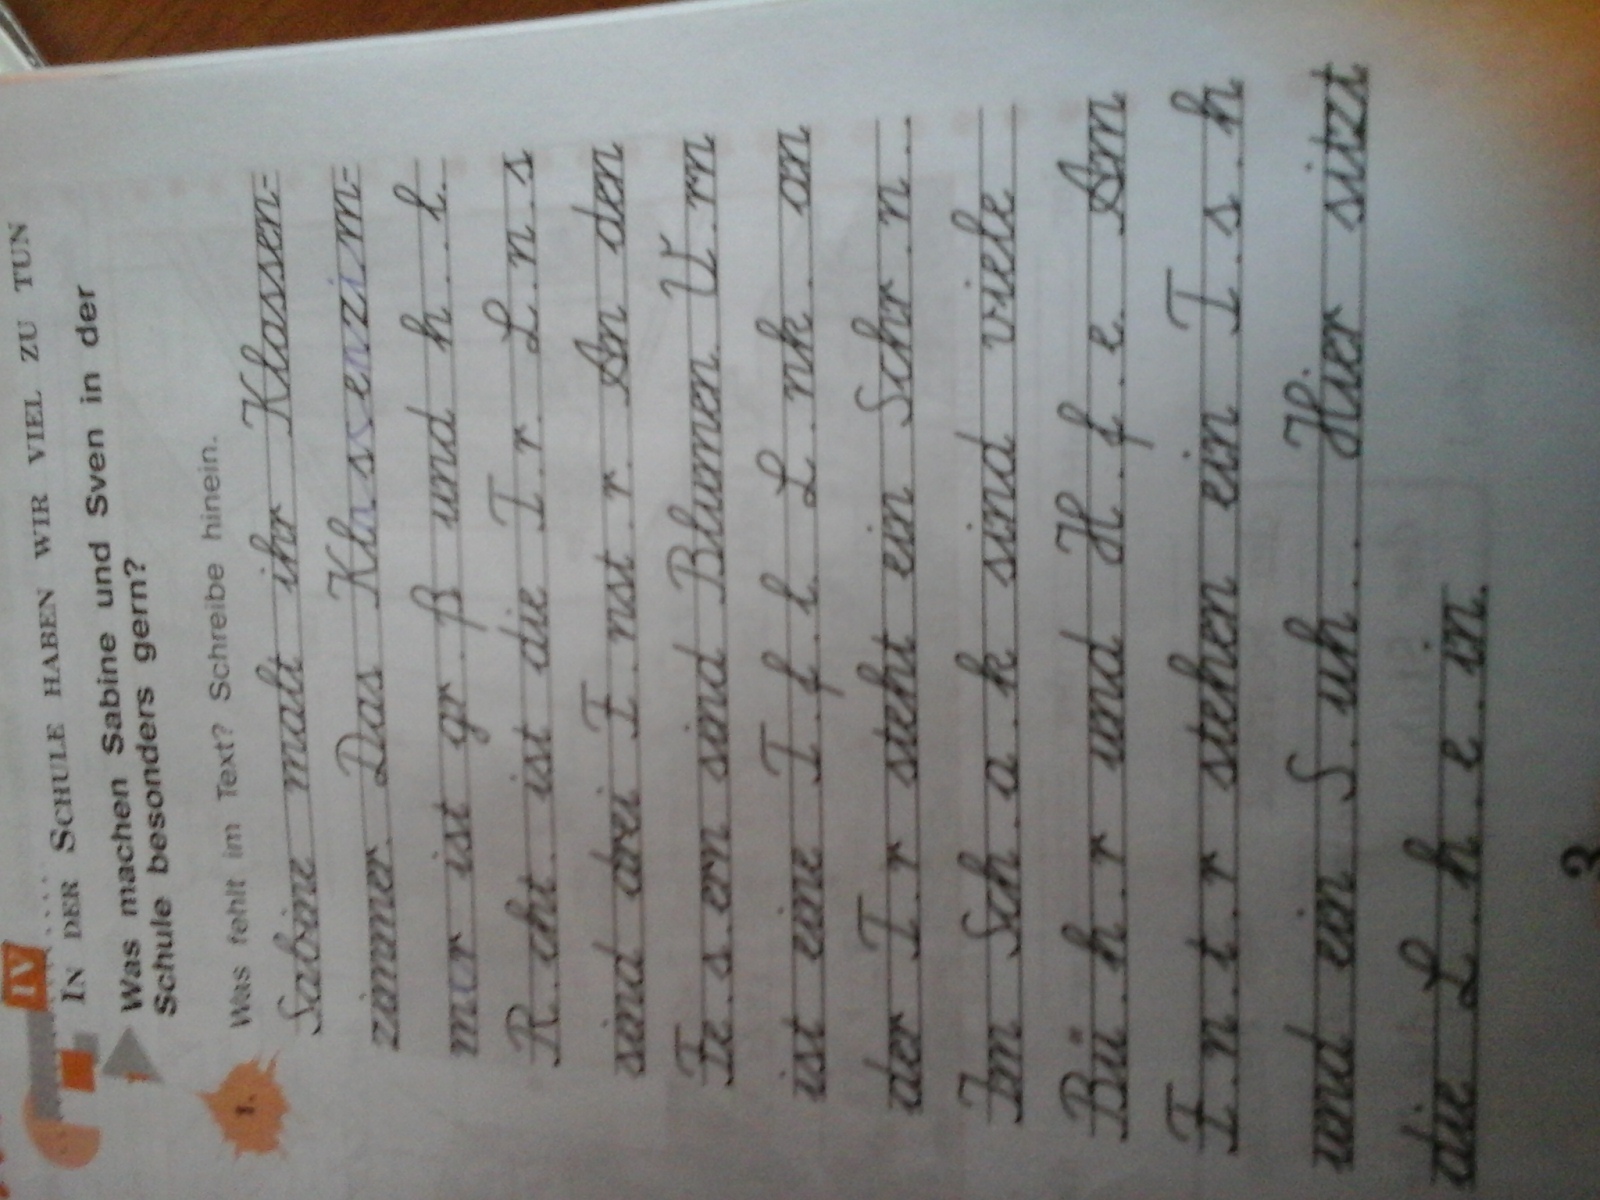 IV
IN DER SCHULE HABEN WIR VIEL ZU TUN
Was machen Sabine und Sven in der
Schule besonders gern?
1.
Was fehlt im Text? Schreibe hinein.
Sabine malt ihr Klassen-
zimmer. Das Klassenzim-
mer ist gr..ß und h..l.
R..cht. ist die T.r. L.n.s
sind drei F.nst.r. An den
Fe.s.ern sind Blumen. V.rn
ist eine T.f.l. L.nk. an
der T.r steht ein Schr.n..
Im Sch.a.k sind viele
Bü.h.r und H.f.e. Am
F.n.t.r stehen ein T.s.h
und ein S.uh.. Hier sitzt
die L.h.e.in.
3